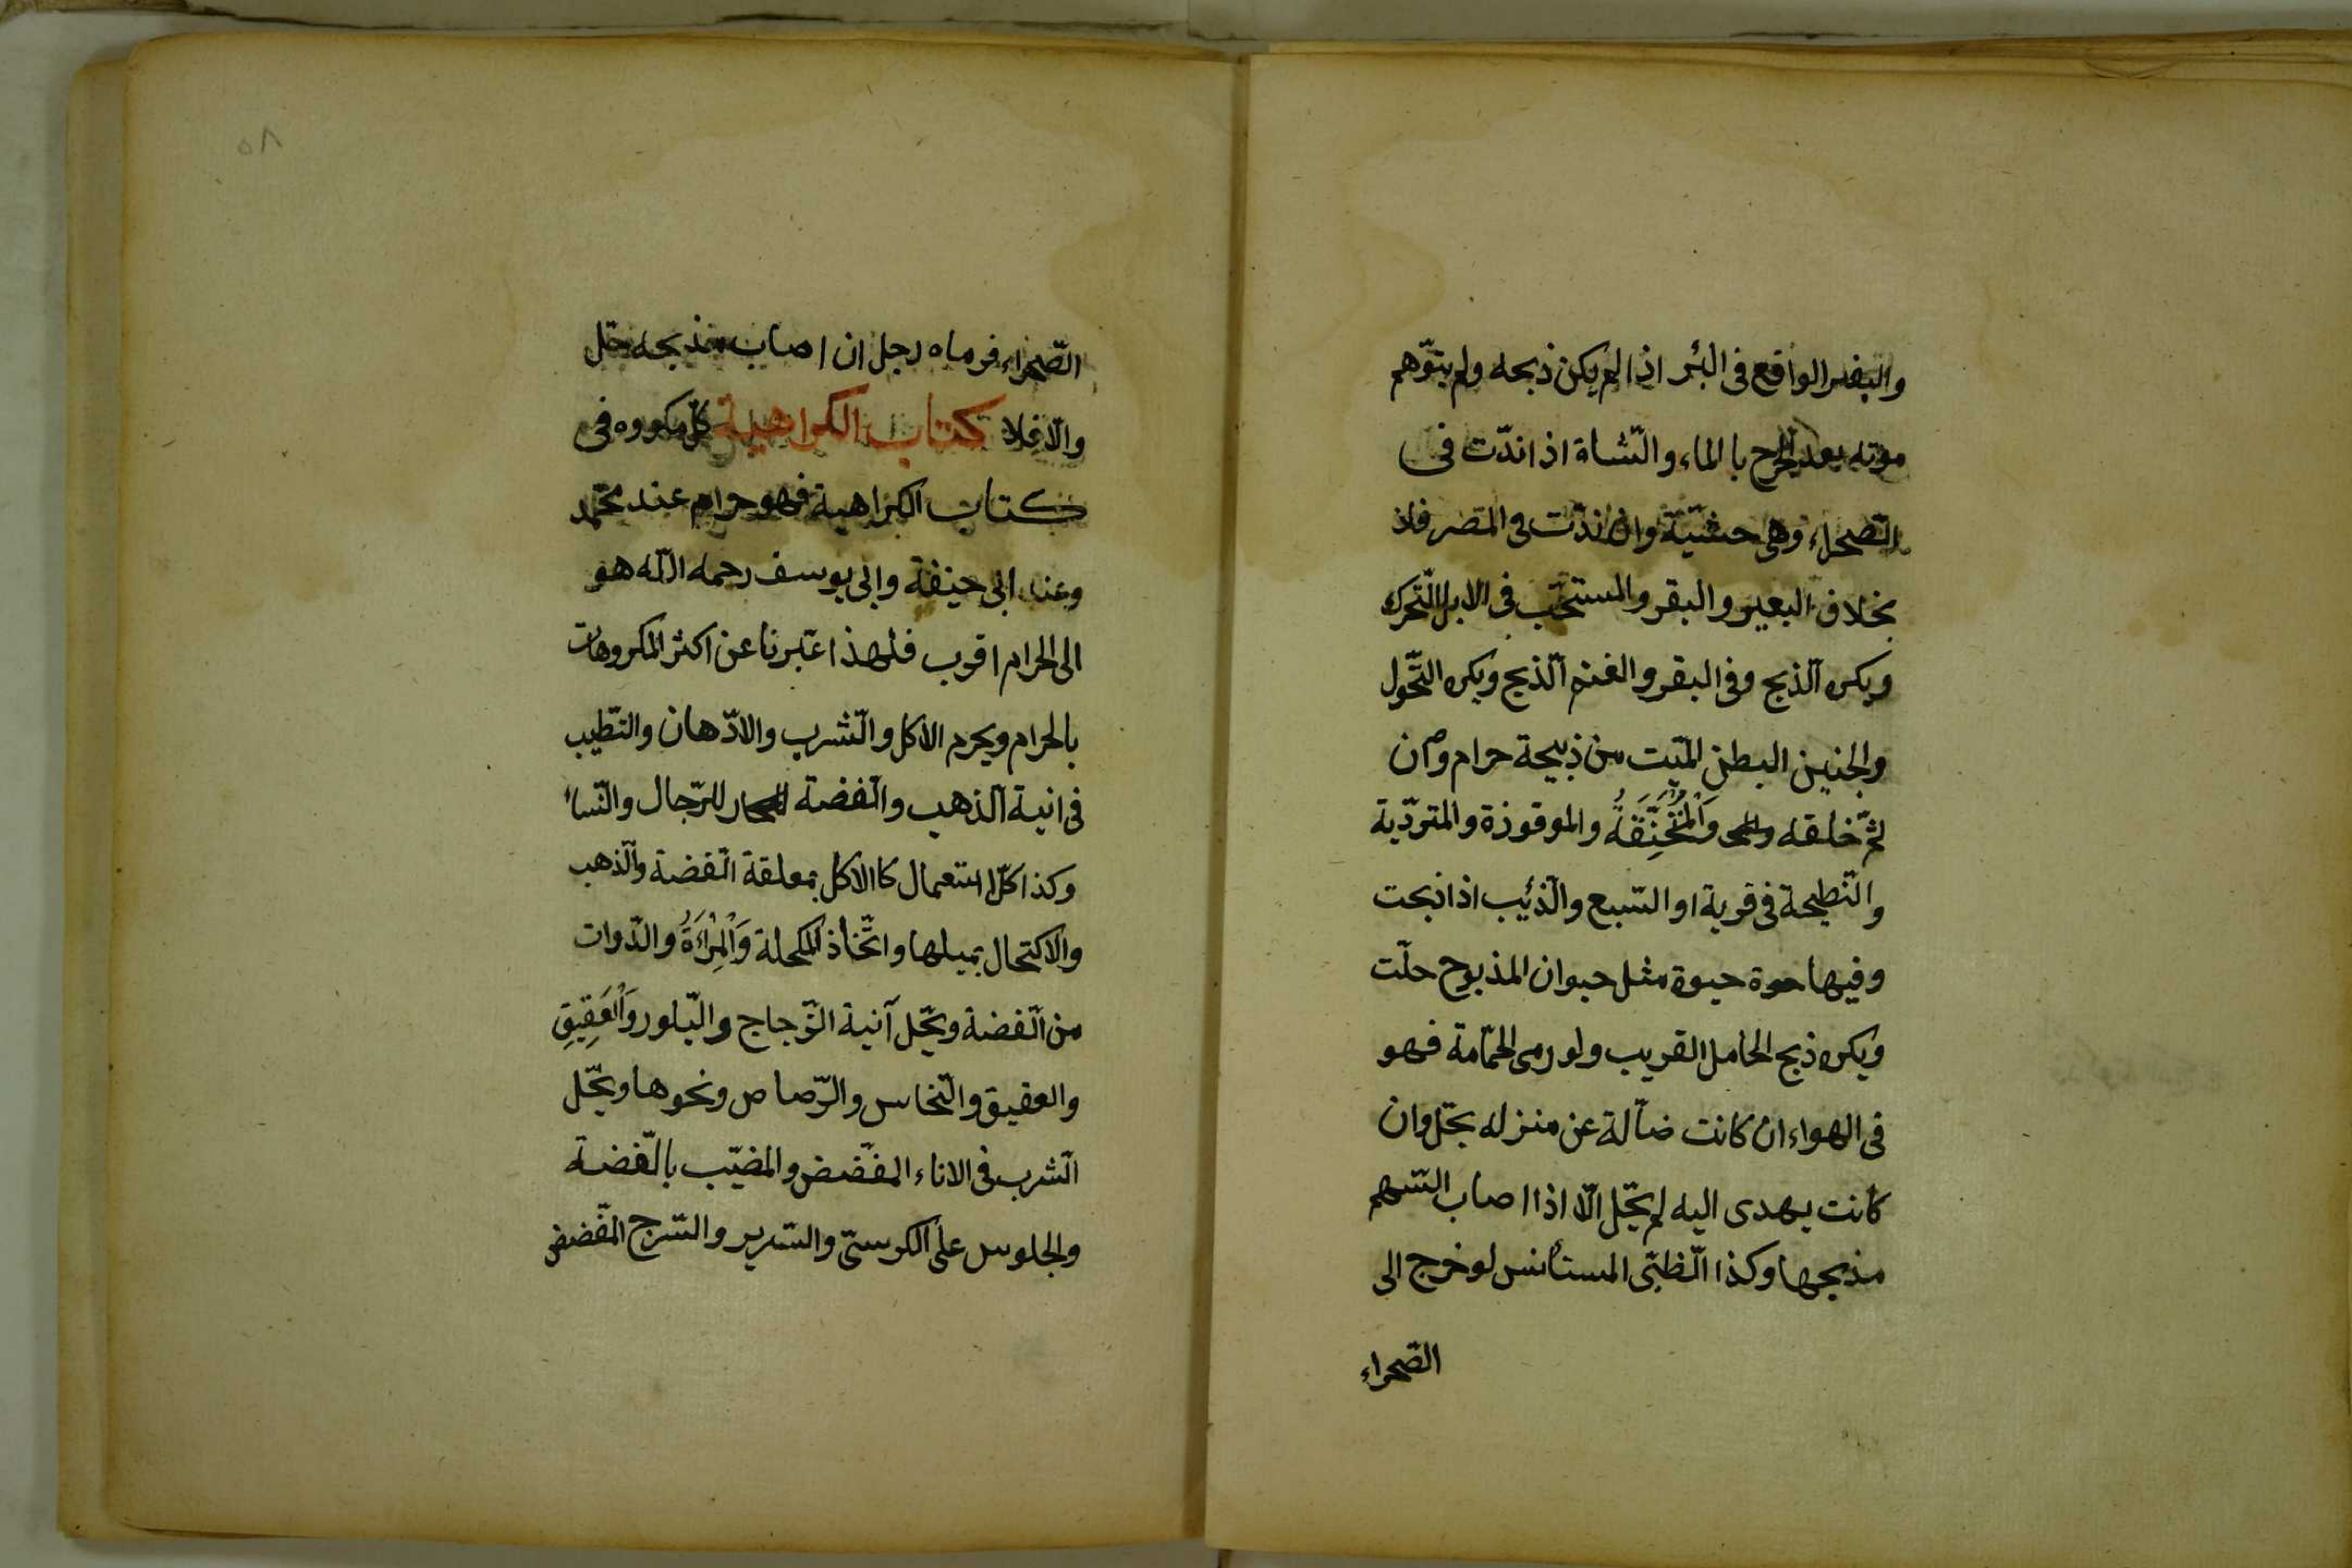 والبقر الواقع فى البئر اذا لم يكن ذبحه ولم يتوّهم
موته بعد الجرح با الماء والشّاة اذا ندّت فى
الصّحراء وهى حشيّة وان ندّت فى المصر فلا
بخلاف البعير والبقر والمستحّب فى الابل النّحر
ويكره الّذبح وفى البقر والغنم الّذبح ويكره التّحول
والجنين البطن الميّت من ذبيحة حرام وان
تمّ خلقه وَالْمُنْخَنِقَةُ والموقوزة والمتردّية
والنّطيحة فى قرية او السّبع والّذئيب اذا ذبحت
وفيها حيوة مثل حيوان المذبوح حلّت
ويكره ذبح الحامل القريب ولو رمى الحّمامة فهو
فى الهواء ان كانت ضآلة عن منزله يحّل وان
كانت يهدى اليه لم يحّل الّا اذا اصاب السّهم
مذبحها وكذا الّظبّى المستأنس لو خرج الى
الصّحراء
٥٨
الصّحراء فرماه رجل ان اصاب مذبحه حّل
والّا فلا كتاب الكراهية كلّ مكووه فى
كتاب الكراهية فهو حرام عند محّمد
وعند ابى حنيفة وابى يوسف رحمه اللّه هو
الى الحرام اقرب فلهذا عّبرنا عن اكثر المكروهات
بالحرام ويحرم الاكل والّشرب والادّهان والتّطيب
فى انية الّذهب والّفضة للرّجال والنّساء
وكذا كلّ استعمال كا الاكل بمعلقة الّفضة والّذهب
والاكتحال بميلها واتّخاذ المكحلة وَالْمِرْاَةُ والدّوات
من الّفضة ويحّل آنية الزّجاج والبّلور وَالْعَقِيقِ
والعقيق والنّحاس والرّصاص ونحوها ويحّل
الّشرب فى الاناء المفّضض والمضبّب بالّفضة
والجلوس على الكرسّى والسّرير والسّرج المفّضض